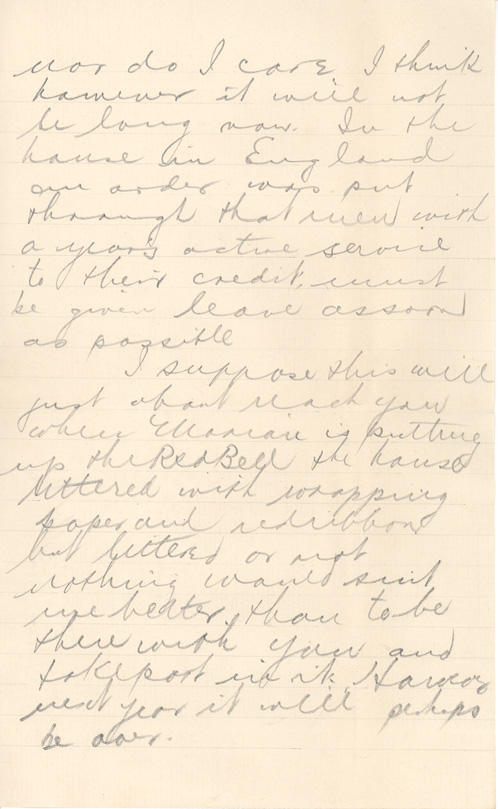 nor do I care I think
however it will not
be long now. In the
house in England
an order was put
through that men with
a year's active service
to their credit, must
be given leave assoon
as possible
I suppose this will
just about reach you
when Marian is putting
up the Red Bell the house
littered with wrapping
paper and red ribbon
but littered or not
nothing would suit
me better, than to be
there with you and
take part in it. However
next year it will perhaps
be over.